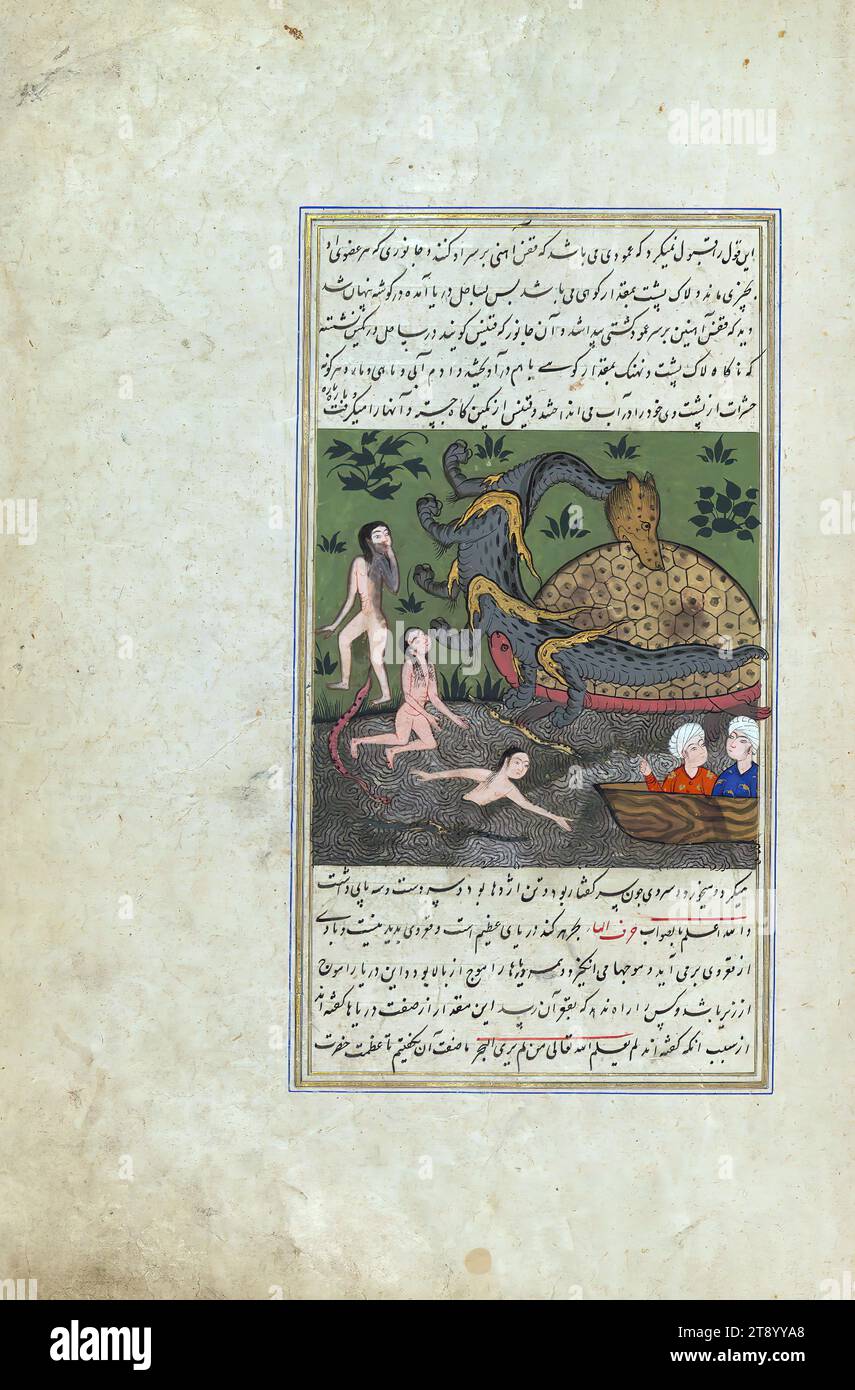 این قول را قبول نمیکرد که عمودی می باشد که قفس آهنی بر سر او کنند و جانوری که هر عضوی او
بچیزی ماند و لاک پشت بمقدار کوهی می باشد پس بساحل دریا آمده در گوشه پنهان شد
دید که قفس آهنین بر سر عمود کشتی پیدا شد و آن جانور که قتنیس گویند در ساحل در کمین نشسته
که ناگاه لاک پشت و نهنگ بمقدار کوهی با هم درآویخته و آدم آبی و ماهی و مار و هر گونه
حشرات از پشت وی خود را در آب می انداختند و قتنیس از کمین گاه جسته و آنها را میگرفت
و پاره پاره
میکرد و میخورد و سر وی چون سر کفتار بود و تن اژدها بود و سر دست و سه پای داشت
و الله اعلم بالصواب حرف الهاء بحر هرکند دریای عظیم است و قعر وی پدید نیست و بادی
از قعر وی بر می آید و موجها می انگیزد و همه دریاها را موج از بالا بود و این دریا را موج
از زیر باشد و کس را راه ندهد که بقعر آن رسد این مقدار از صفت دریاها گفته اند
از سبب آنکه گفته اند لم یعلم الله تعالی من لم یری البحر ما صفت آن بگفتیم تا عظمت حضرت
alamy
alamy
Image ID: 2T8YYA8
www.alamy.com